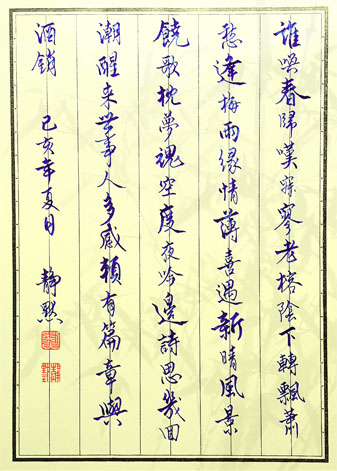 誰喚春歸嘆寂寥老榕陰下轉飄蕭
愁逢梅雨緣情薄喜遇新晴風景
饒歌枕夢魂空度夜吟邊詩思幾回
潮醒来世事人多感賴有篇章與
酒銷 己亥年夏日 靜默